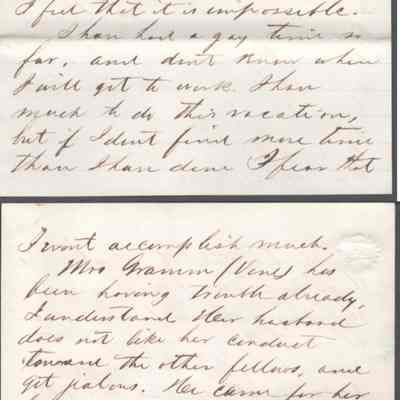 I feel that it is impossible.
I have had a gay time so
far, and dont know when
I will get to work. I have
much to do this vacation,
but if I dont find more time
than I have done I fear that
I wont accomplish much.
Mrs Gramm (Vene) has
been having trouble already,
I understand. Her husband
does not like her conduct
toward the other fellows, and
get jealous. He came for her